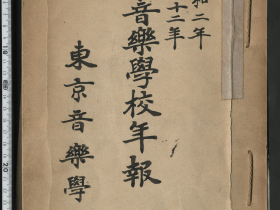 和二年
十二年
音樂學校年報
東京音樂學